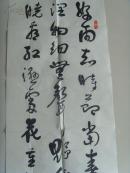 好雨知時節當春
潤物細無聲野
曉看紅濕處花重